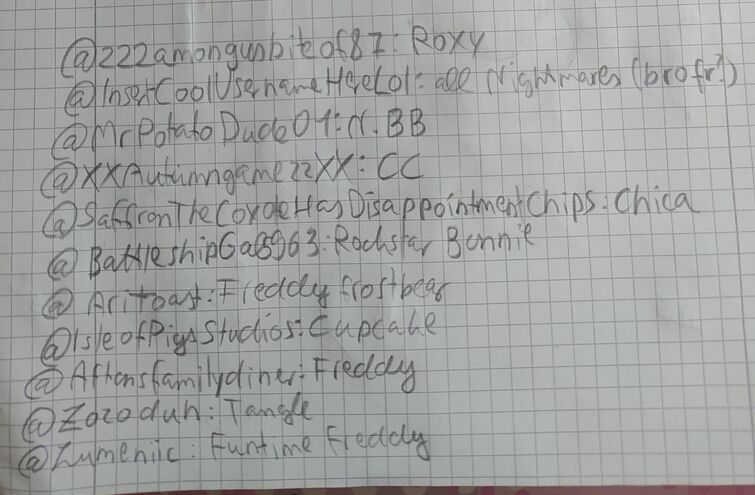 @z22amongusbiteof87: Roxy
@InsertCoolUsernameHereLol: all Nightmares (bro fr?)
@MrPotatoDude01: N. BB
@XXAutumngamezzXX: CC
@SaffronTheCoyoteHasDisappointmentChips: Chica
@BattleshipGaB963: Rockstar Bonnie
@Aritoast: Freddy frostbear
@IsleofPigsStudios: Cupcake
@Aftonsfamilydiner: Freddy
@Zozoduh: Tangle
@Lumeniic: Funtime Freddy